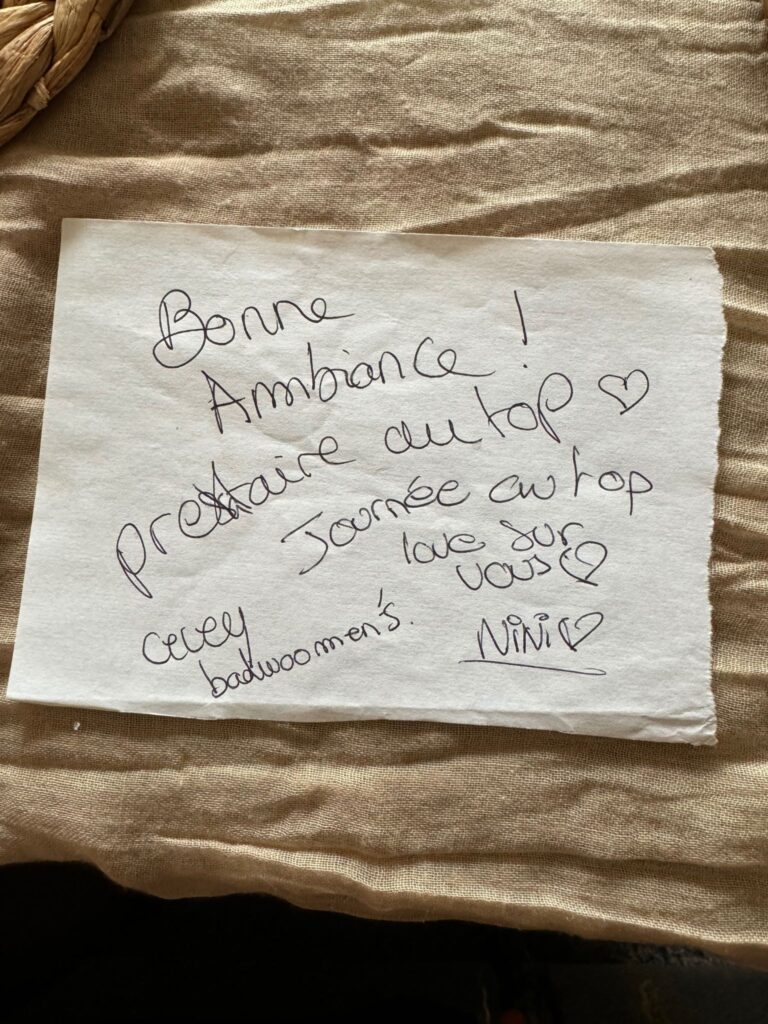 Bonne
Ambiance !
prestaire au top ♡
Journée au top
love sur
vous ♡
badwoomen's.
NiNi ♡